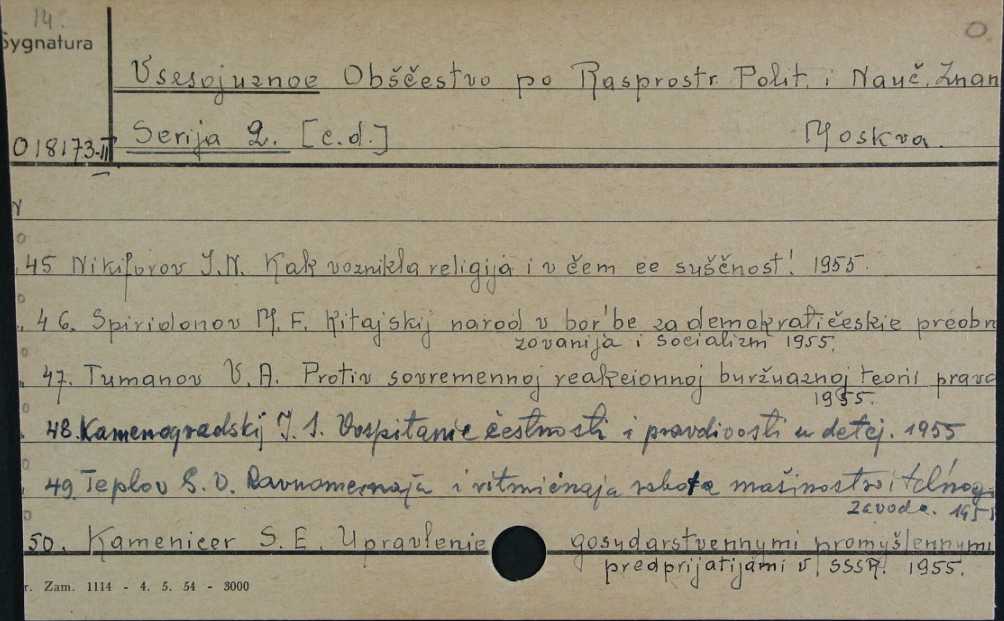 14.
O.
Sygnatura
Vsesojuznoe Obščestvo po Rasprostr. Polit. i Nauč. Znan
Serija 2. [c.d.] Moskva.
018173-II
45 Nikiforov I.N. Kak voznikla religija i v čem ee suščnost'. 1955.
46. Spiridonov M. F. Kitajskij narod v bor'be za demokratičeskie preobr
zovanija i socializm 1955.
47. Tumanov V. A. Protiv sovremennoj reakcionnoj buržuaznoj teorii prava
1955.
48. Kamenogradskij I. S. Vospitanie čestnosti i pravdivosti u detej. 1955
49. Teplov G. V. Ravnomernaja i ritmičnaja rabota mašinostroitel'nogo
zavoda. 1955
50. Kamenicer S. E. Upravlenie gosudarstvennymi promyšlennymi
predprijatijami v SSSR. 1955.
r. Zam. 1114 - 4. 5. 54 - 3000